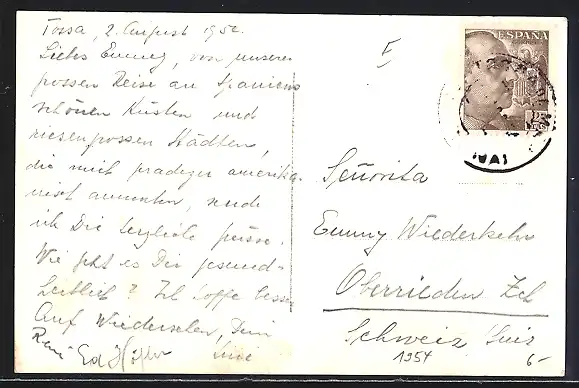 Tossa, 2. August 195
Liebs Emmy, von unserer
grossen Reise an Spaniens
schönen Küsten und
riesengrossen Städten,
die mit gradezu amerika-
nisch anmuten, sende
ich Dir herzliche Grüsse.
Wie geht es Dir gesund-
heitlich? Ich hoffe besser
Auf Wiedersehen, Dein
ESPAÑA
Señorita
Emmy Wiederkehr
Oberrieden Zch
Schweiz Suiz
1954
6-